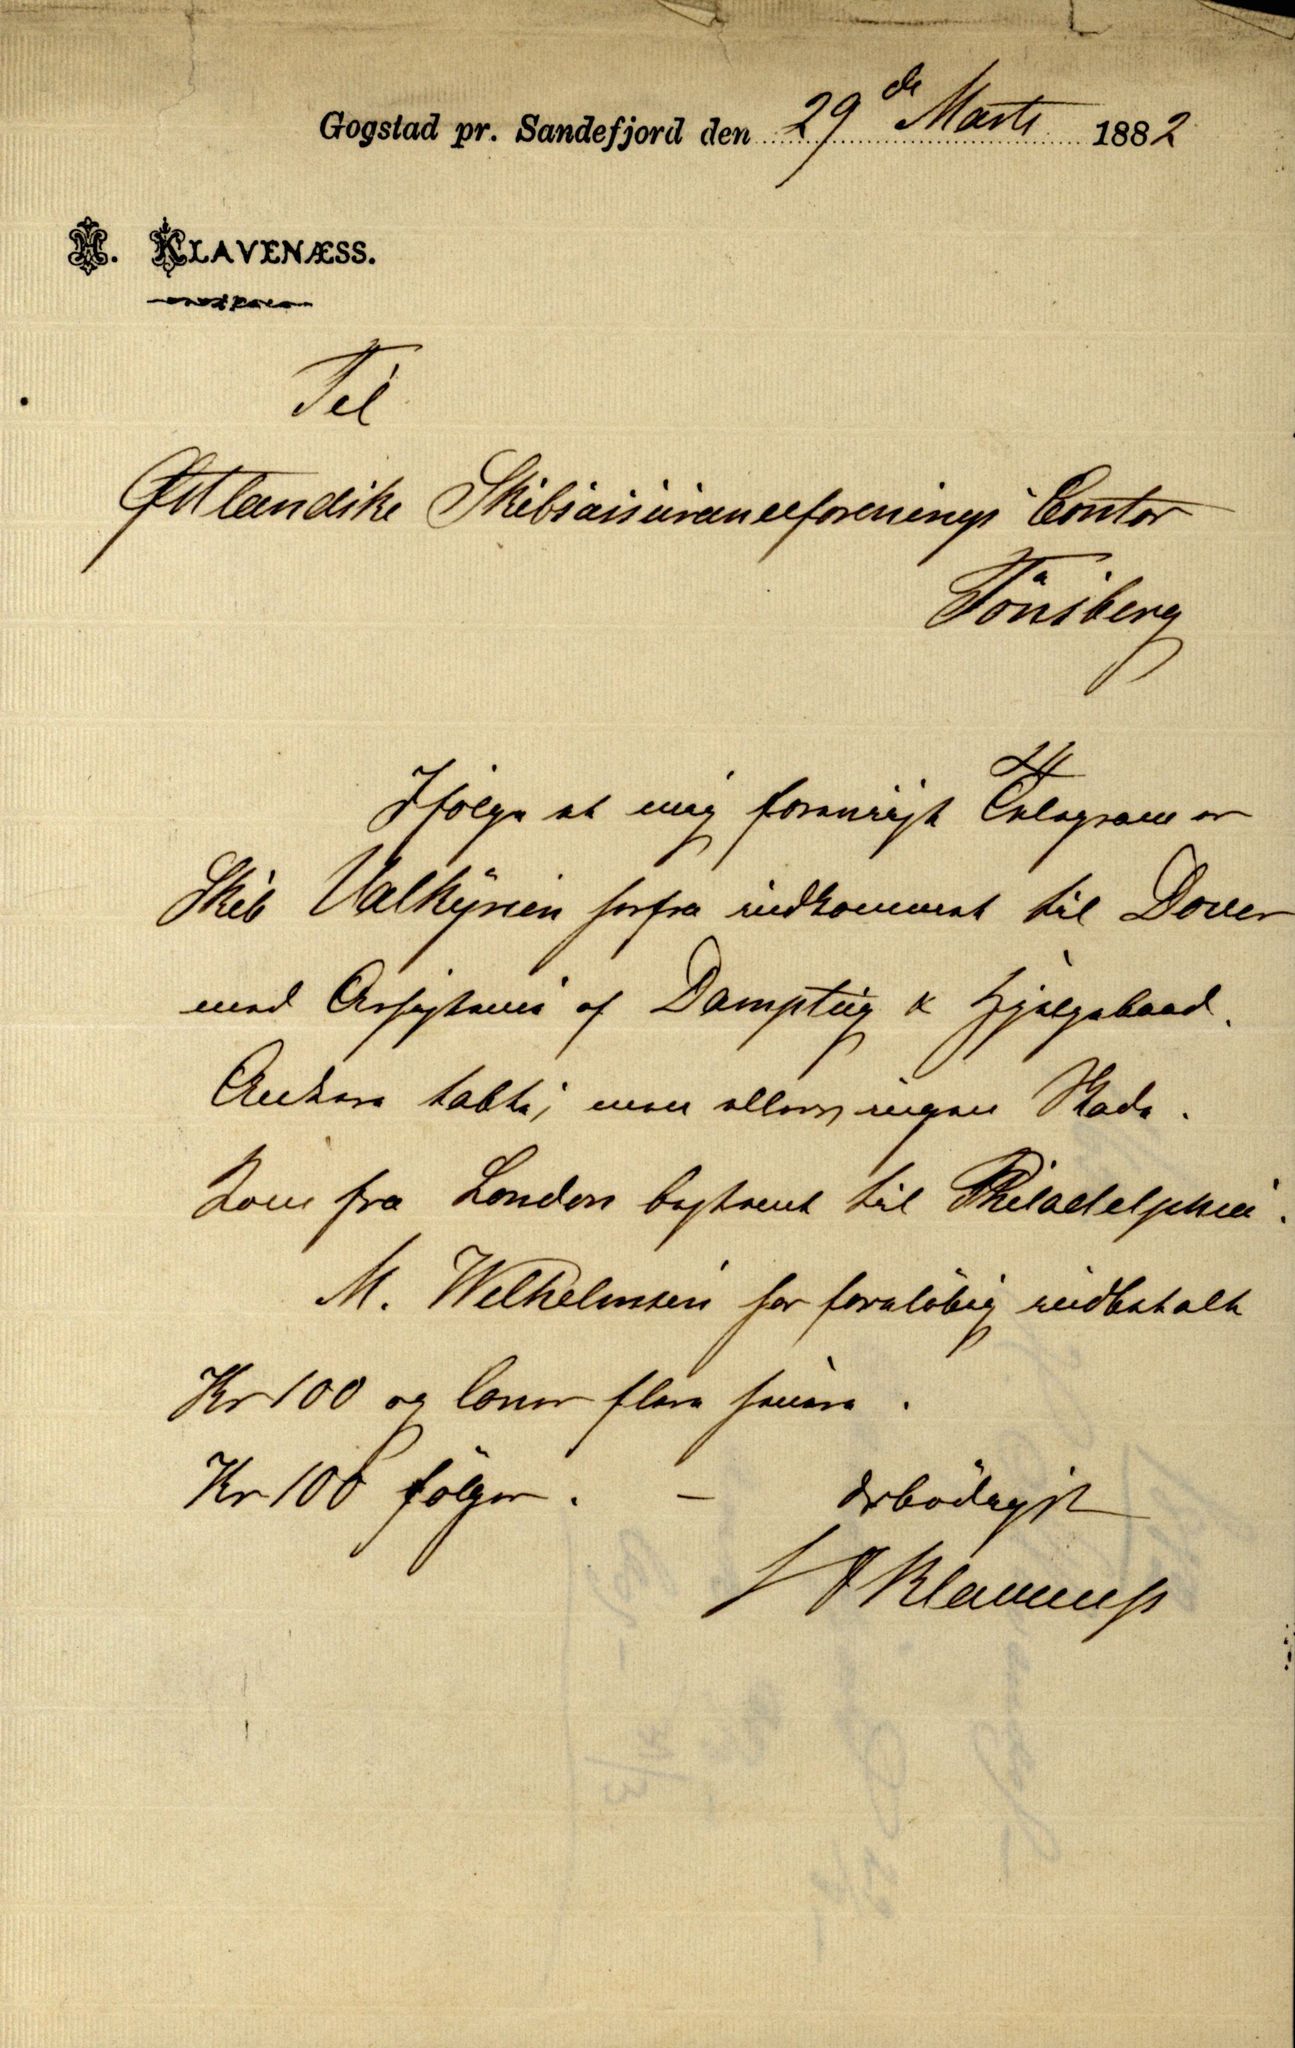 Gogstad pr. Sandefjord den 29de Marts 1882
H. KLAVENÆSS.
Til
Østlandske Skibsassuranceforenings Contor
Tönsberg
Ifölge et mig foreviist Telegram er
Skib Valkyrien herfra indkommet til Dover
med Assistance af Damptug & Hjelpebaad.
Ankere tabte; men ellers ingen Skade.
Kom fra London bestemt til Philadelphia.
M. Wilhelmsen har forelöbig indbetalt
Kr 100 og lover flere senere.
Kr 100 fölger. —
Ærbödigst
H Klavenæss